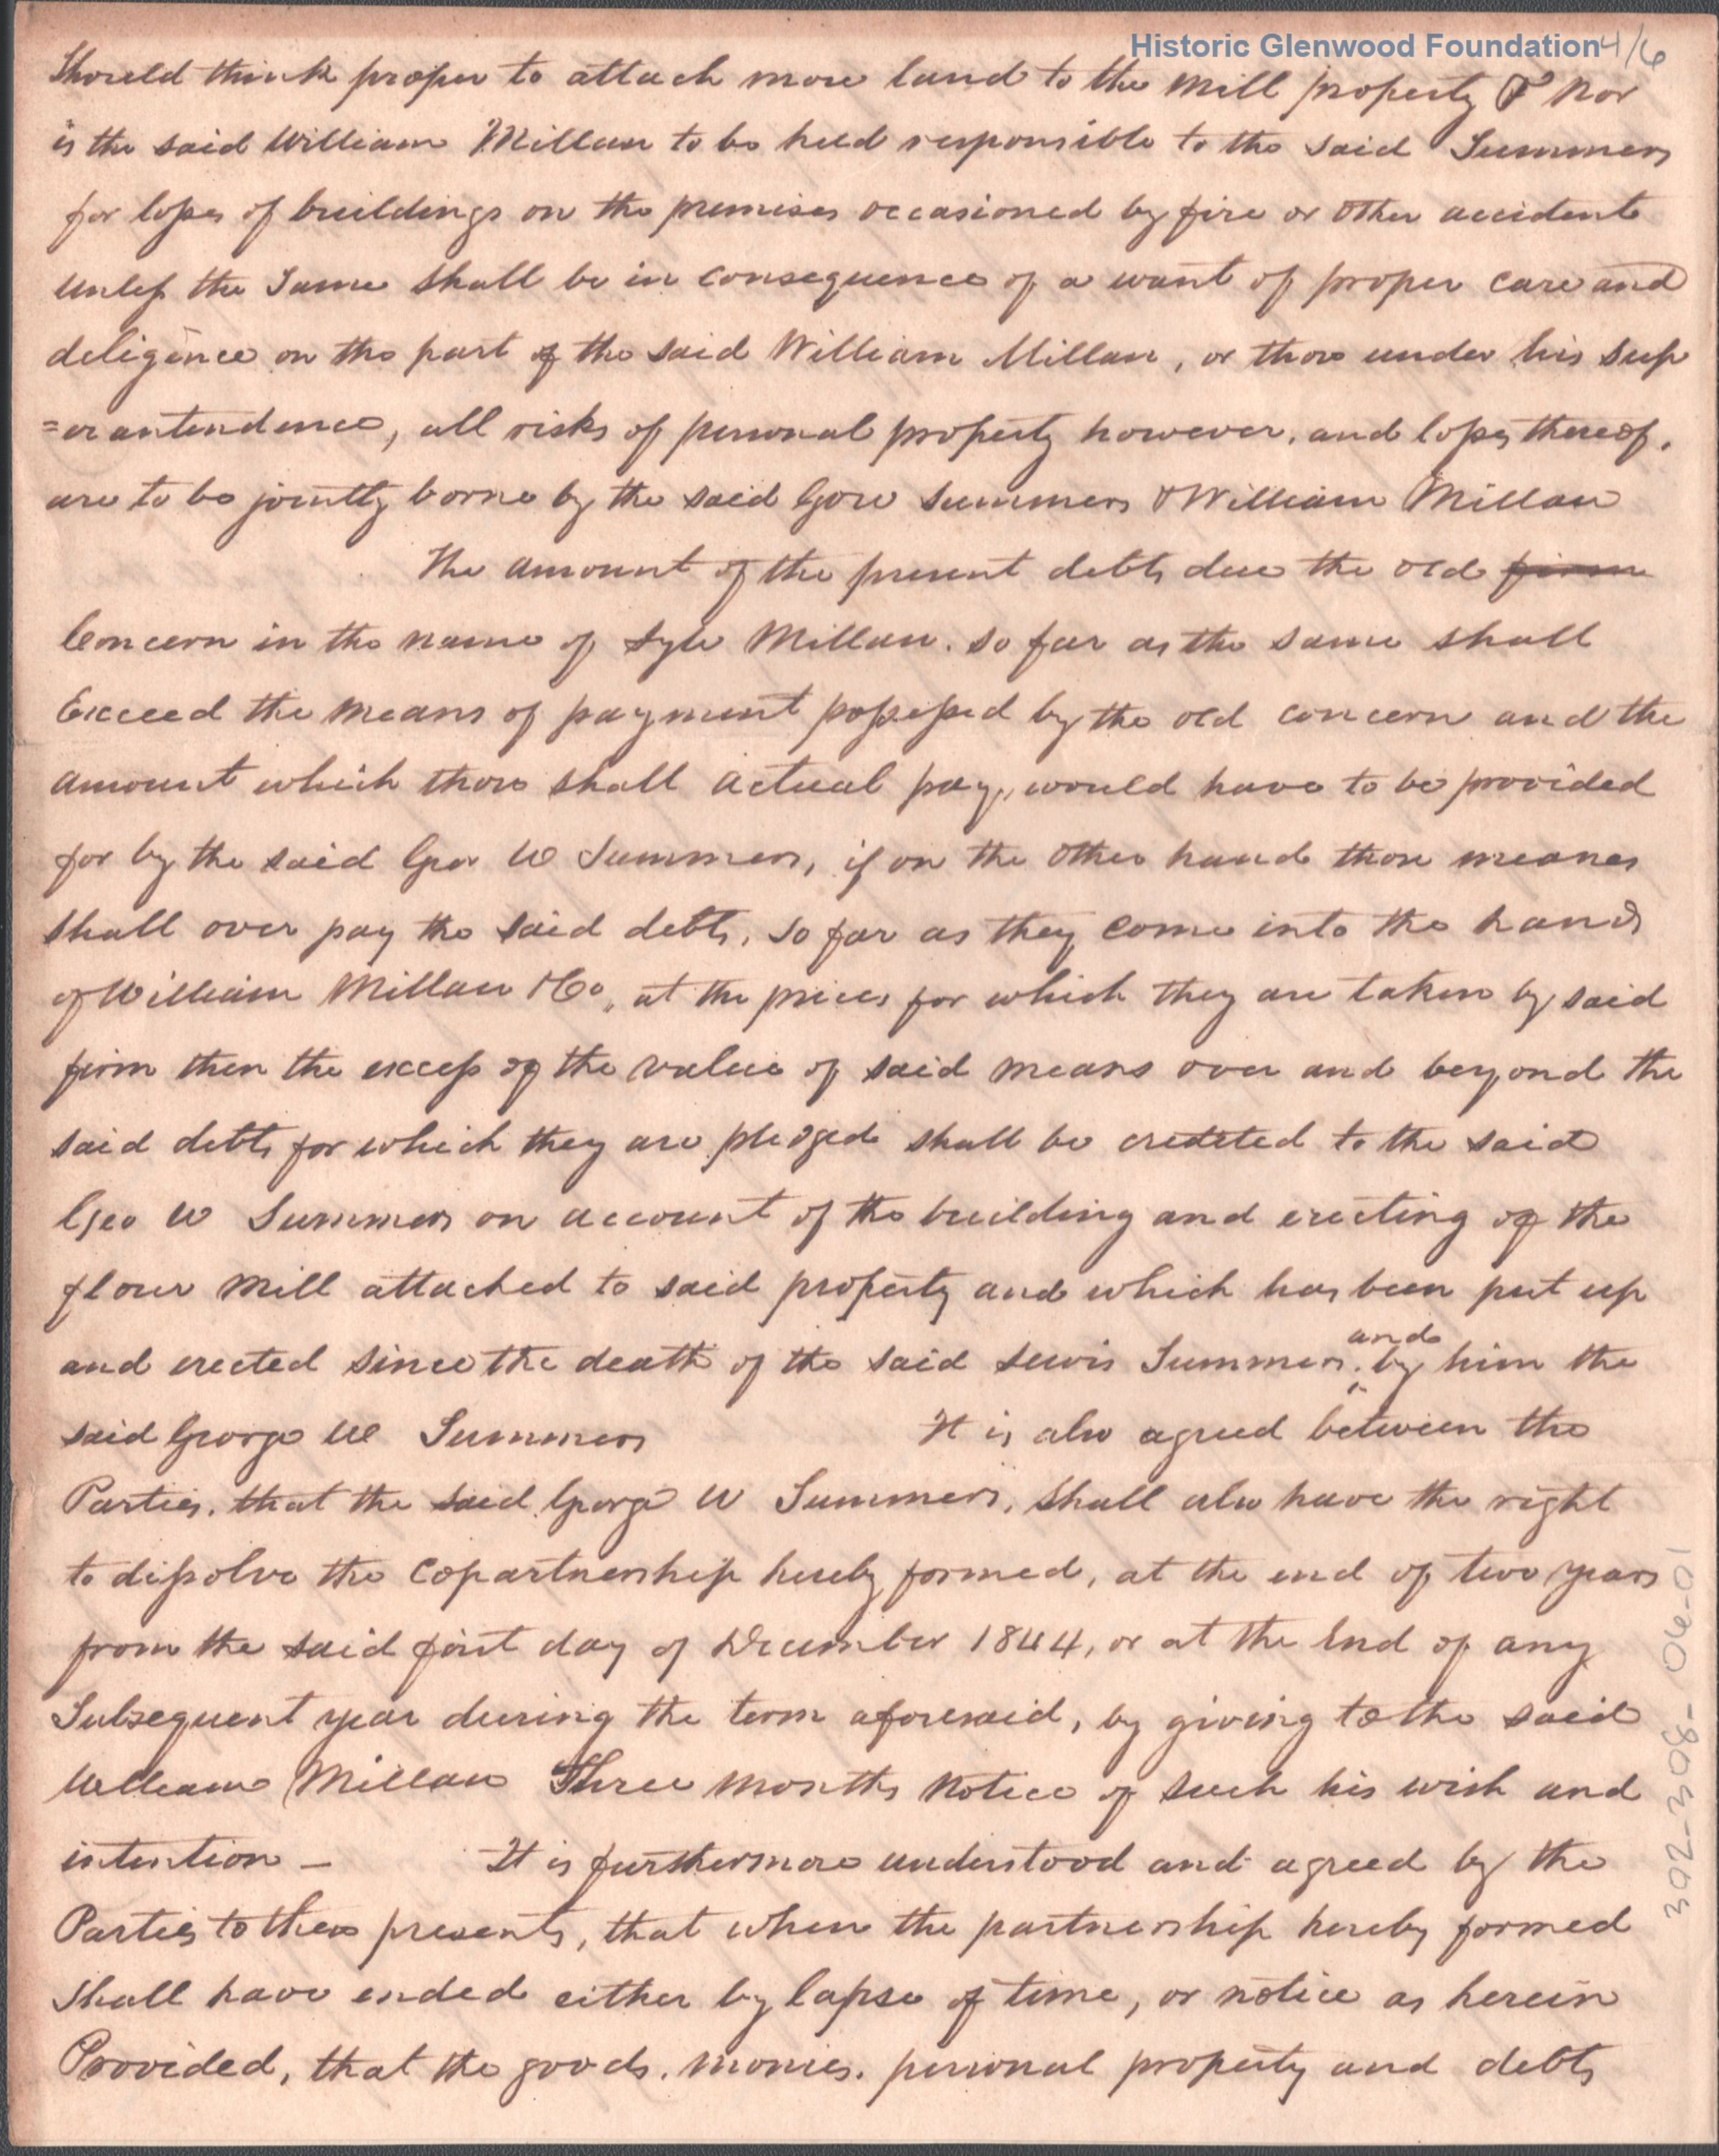 Historic Glenwood Foundation 4/6
Should think proper to attach more land to the mill property & Nor
is the said William Millan to be held responsible to the said Summers
for losses of buildings on the premises occasioned by fire or other accident
unless the same shall be in consequence of a want of proper care and
deligence on the part of the said William Millan, or those under his sup
=erantendence, all risks of personal property however, and losses thereof,
are to be jointly borne by the said Geo W Summers & William Millan
The amount of the present debts due the old firm
Concern in the name of Lyle Millan. so far as the same shall
Exceed the means of payment possessed by the old concern and the
amount which those shall actual pay, would have to be provided
for by the said Geo W Summers, if on the other hand those means
shall over pay the said debts, so far as they come into the hands
of William Millan & Co, at the prices for which they are taken by said
firm then the excess of the value of said means over and beyond the
said debts for which they are pledged shall be credited to the said
Geo W Summers on account of the building and erecting of the
flour mill attached to said property and which has been put up
and erected since the death of the said Lewis Summers, and by him the
said George W Summers It is also agreed between the
Parties, that the said George W Summers, shall also have the right
to dissolve the Copartnership hereby formed, at the end of two years
from the said first day of December 1844, or at the End of any
Subsequent year during the term aforesaid, by giving to the said
William Millan Three months Notice of such his wish and
intention — It is furthermore understood and agreed by the
Parties to these presents, that when the partnership hereby formed
shall have ended either by lapse of time, or notice as herein
Provided, that the goods, monies, personal property and debts
302-308-06-01